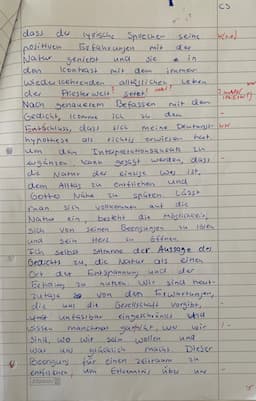 dass der lyrische Sprecher seine
positiven Erfahrungen mit der
Natur genießt und sie in
den Kontrast mit dem immer
wiederkehrenden alltäglichen Leben
der Priester
Nach genauerem Befassen mit dem
Gedicht, komme ich zu dem
Entschluss, dass sich meine Deutungs-
hypothese als richtig erwiesen hat.
Um den Interpretationsansatz zu
ergänzen kann gesagt werden, dass
die Natur der einzige Weg ist,
dem Alltag zu entfliehen und
Gottes Nähe zu spüren. Lässt
man sich vollkommen auf die
Natur ein, besteht die Möglichkeit,
sich von seinen Beengungen zu lösen
und sein Herz zu öffnen.
Ich selbst stimme der Aussage des
Gedichts zu, die Natur als einen
Ort der Entspannung und der
Erholung zu nutzen. Wir sind heut-
zutage von den Erwartungen,
die uns die Gesellschaft vorgibt,
unfassbar eingeschränkt und
wissen manchmal gar nicht, wer wir
sind, wo wir sein wollen und
was uns glücklich macht. Dieser
Beengung für einen Zeitraum zu
entfliehen, um Erkenntnis über uns